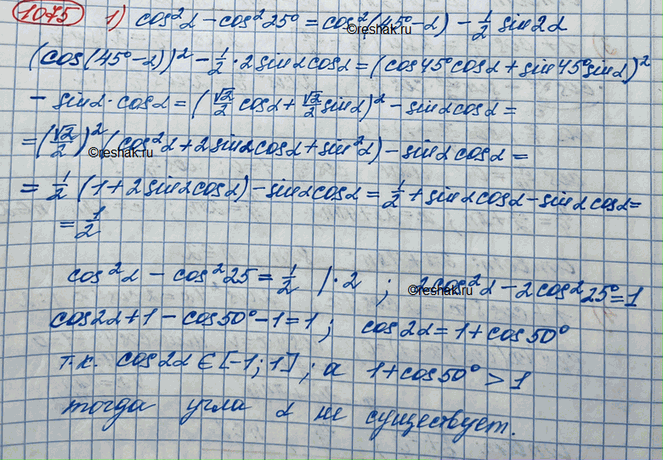 1075 1) cos²α - cos²25° = cos²(45°-α) - 1/2 sin2α
©reshak.ru
(cos(45°-α))² - 1/2 · 2sinα cosα = (cos45°cosα + sin45°sinα)²
- sinα · cosα = (√2/2 cosα + √2/2 sinα)² - sinαcosα =
= (√2/2)² (cos²α + 2sinαcosα + sin²α) - sinαcosα =
©reshak.ru
= 1/2 (1 + 2sinαcosα) - sinαcosα = 1/2 + sinαcosα - sinαcosα =
= 1/2
cos²α - cos²25 = 1/2 | · 2 ; 2cos²α - 2cos²25° = 1
©reshak.ru
cos2α + 1 - cos50° - 1 = 1 ; cos2α = 1 + cos50°
т.к. cos2α ∈ [-1; 1] ; а 1 + cos50° > 1
тогда угла α не существует.